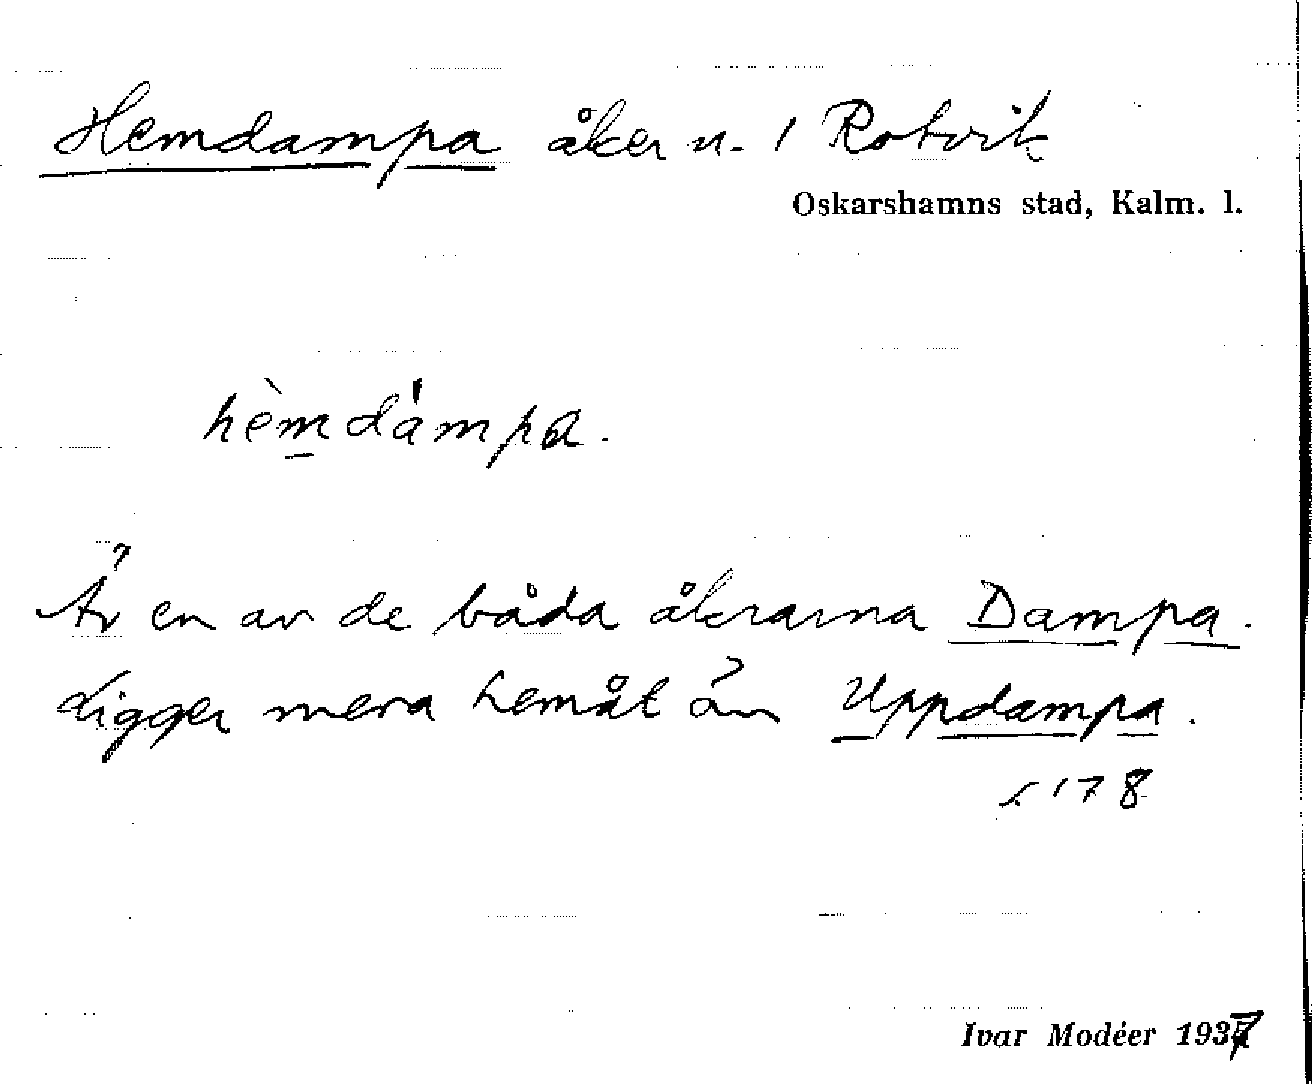 Hemdampa åker u. 1 Rotvik
Oskarshamns stad, Kalm. l.
hèmdámpa.
Är en av de båda åkrarna Dampa.
Ligger mera hemåt än Uppdampa.
s. 178
Ivar Modéer 1937